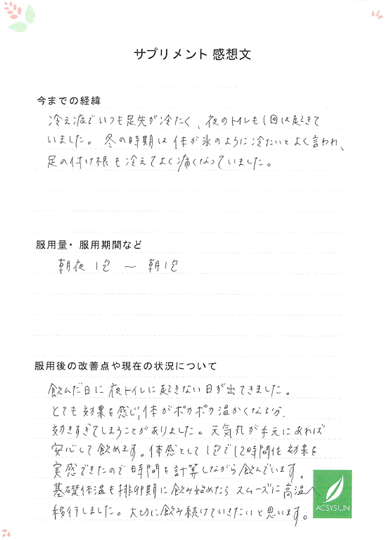 サプリメント 感想文
今までの経緯
冷え症でいつも足先が冷たく、夜のトイレも1回は起きて
いました。冬の時期は体が氷のように冷たいとよく言われ、
足の付け根も冷えてよく痛くなっていました。
服用量・服用期間など
朝夜 1包 〜 朝1包
服用後の改善点や現在の状況について
飲んだ日に夜トイレに起きない日が出てきました。
とても効果を感じ、体がポカポカ温かくなる分、
効きすぎてしまうことがありました。元気丸が手元にあれば
安心して飲めます。体感として1包で12時間位効果を
実感できたので時間を計算しながら飲んでいます。
基礎体温も排卵期に飲み始めたらスムーズに高温へ
移行しました。大切に飲み続けていきたいと思います。
ACSYSUN